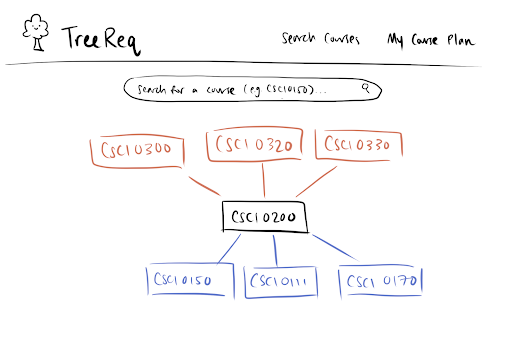 TreeReq
Search Courses
My Course Plan
Search for a course (eg CSCI0150)...
CSCI 0300
CSCI 0320
CSCI 0330
CSCI 0200
CSCI 0150
CSCI 0111
CSCI 0170